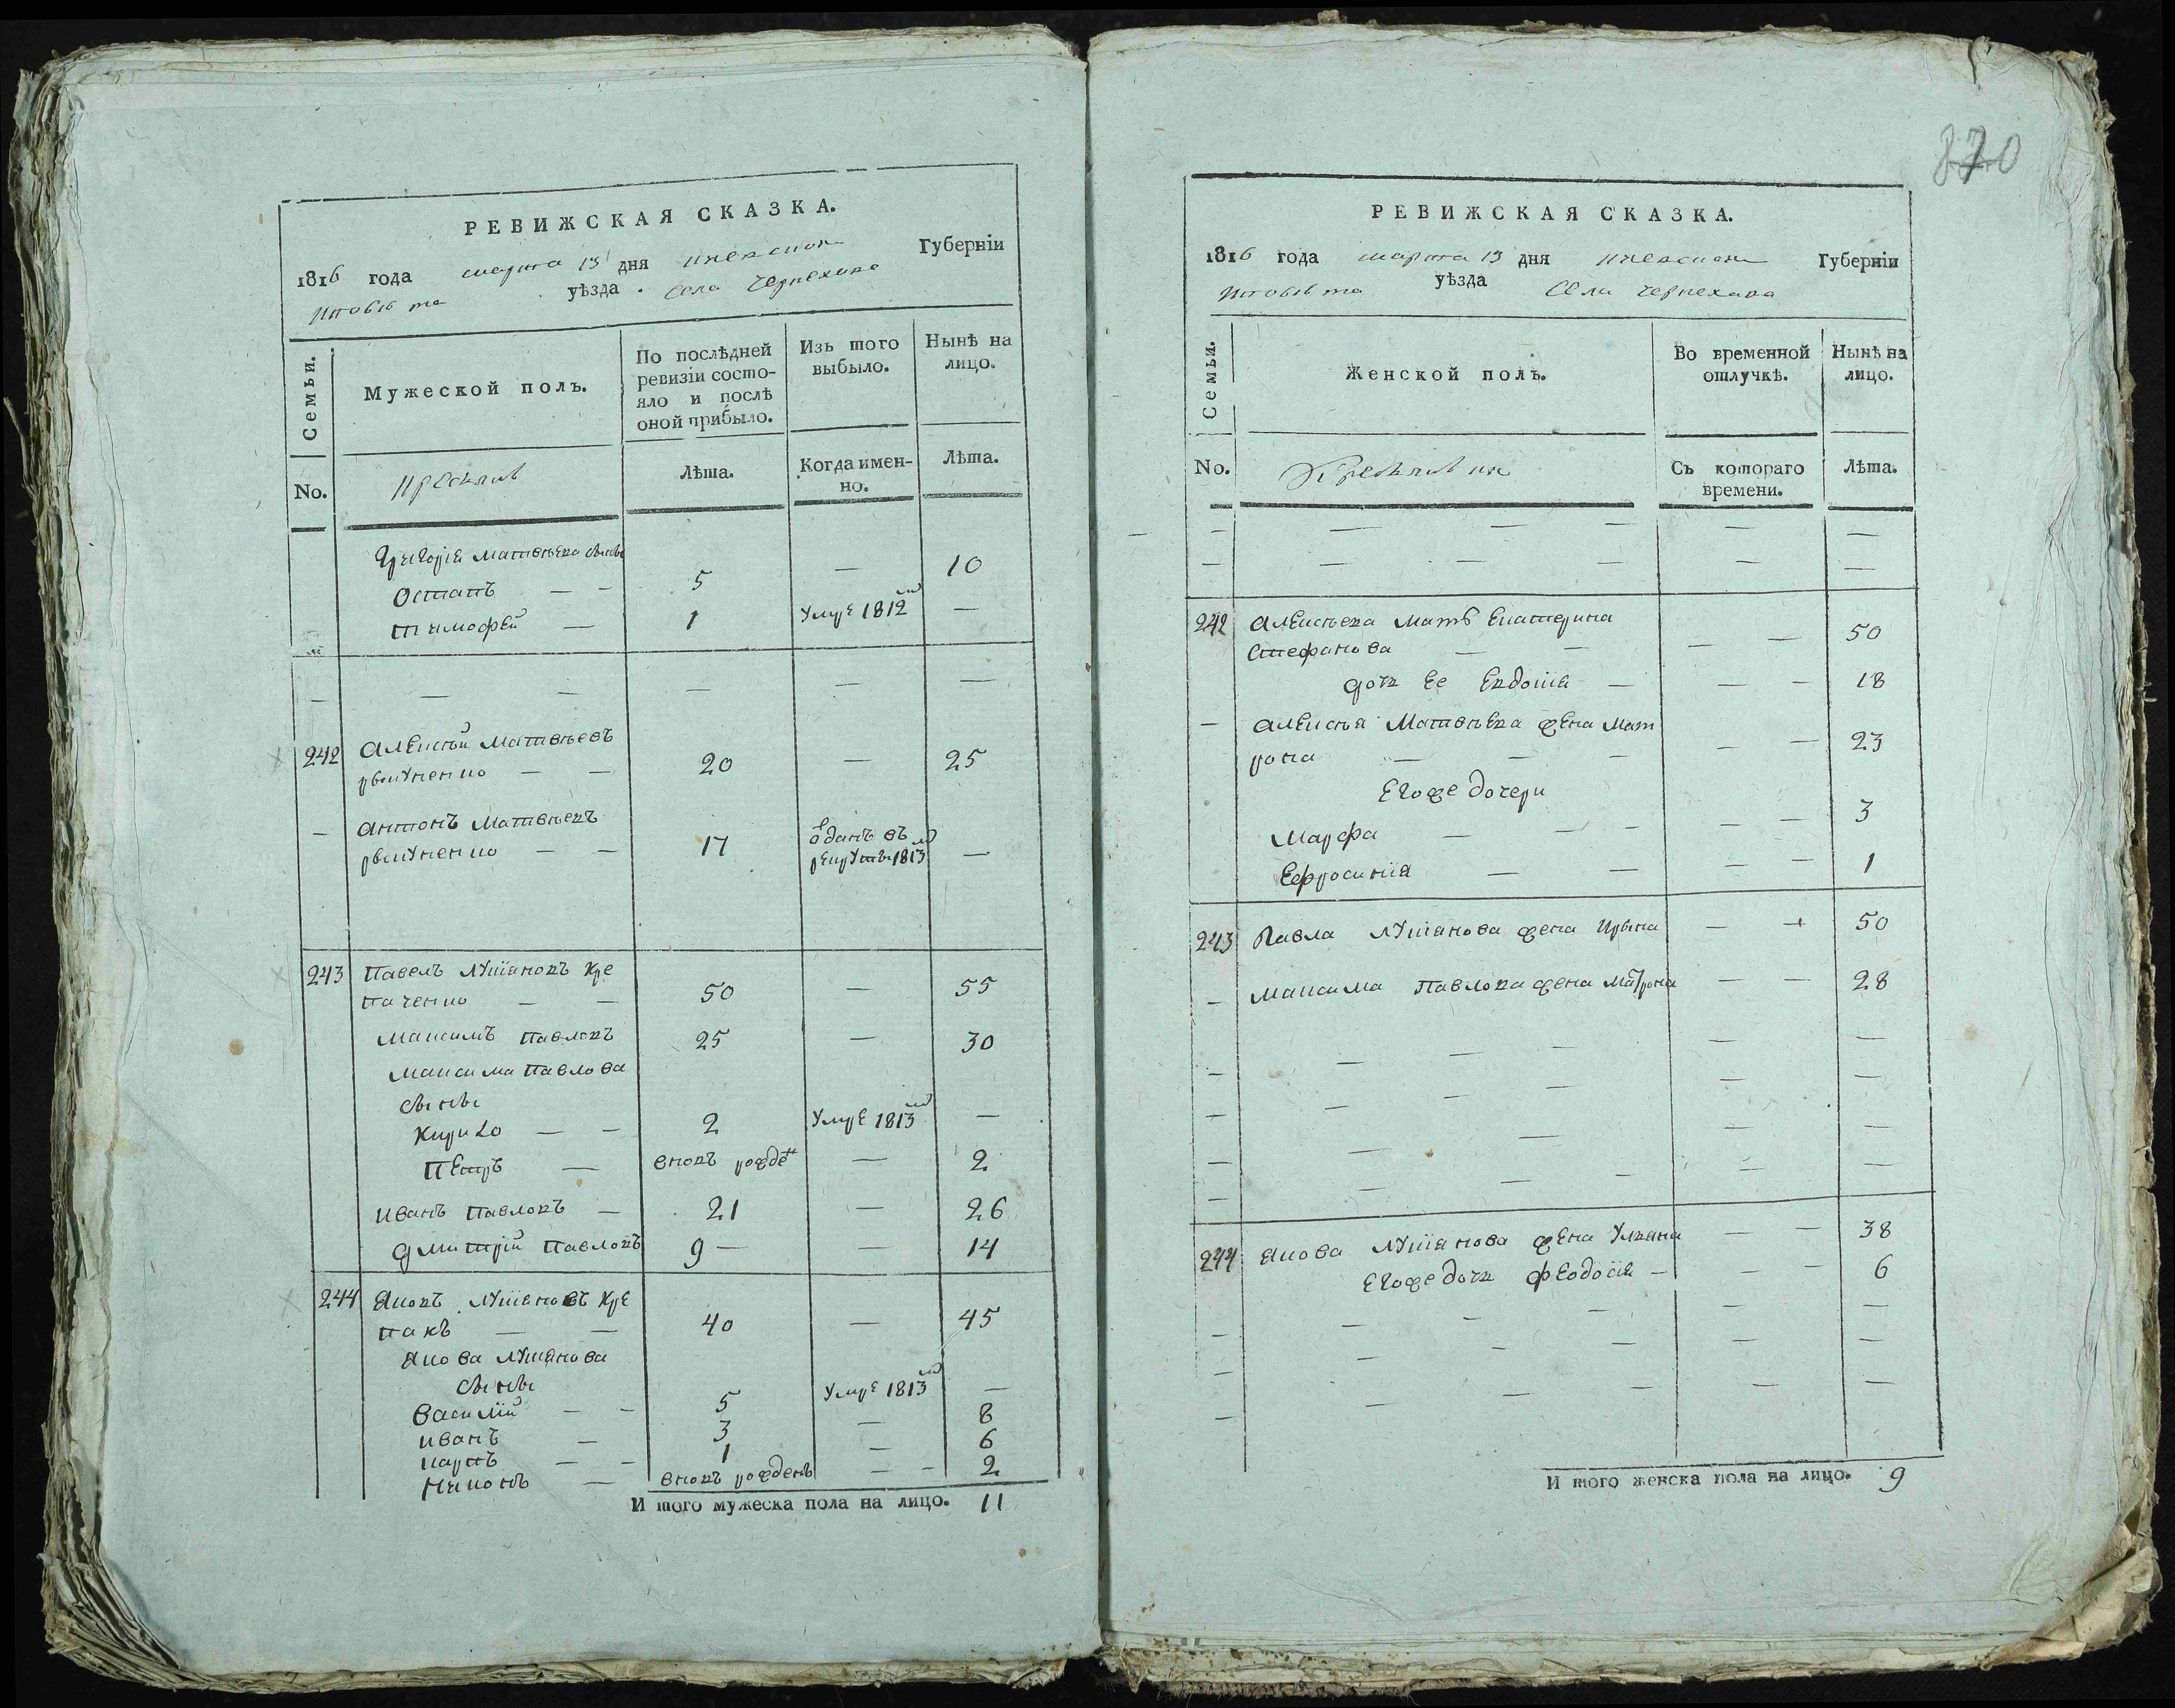 РЕВИЖСКАЯ СКАЗКА.
1816 года марта 13 дня Киевской Губерніи
уѣзда Села Черпехова
Семьи.
Мужеской полъ.
По послѣдней ревизіи состо-
яло и послѣ
оной прибыло.
Изъ того выбыло.
Нынѣ на лицо.
No.
Лѣта.
Когда имен-
но.
Лѣта.
Григорія Матвѣева сыны
Остапъ — — 5 — 10
Тимофей — 1 Умре 1812 —
242 Алексѣй Матвѣевъ
— — 20 — 25
— Антонъ Матвѣевъ
— — 17 отданъ въ рекруты 1813 —
243 Павелъ Лукіановъ Кре
паченко — — 50 — 55
Максимъ Павловъ 25 — 30
Максима Павлова
сыны
Кирило — — 2 Умре 1813 —
Петръ — вновь рожден — 2
Иванъ Павловъ — 21 — 26
Дмитрій Павловъ 9 — — 14
244 Яковъ Лукіановъ Кре
пакъ — — 40 — 45
Якова Лукянова
сыны
Василій — — 5 Умре 1813 —
Иванъ — 3 — 8
Карпъ — — 1 — 6
Никонъ — вновь рожденъ — — 2
И того мужеска пола на лицо. 11
870
РЕВИЖСКАЯ СКАЗКА.
1816 года марта 13 дня Киевской Губерніи
уѣзда Села Черпехова
Семьи.
Женской полъ.
Во временной отлучкѣ.
Нынѣ на лицо.
No.
Съ котораго
времени.
Лѣта.
242 Алексѣева мать Екатерина
Стефанова — — — — 50
дочь ее Евдокія — — — 18
— Алексѣя Матвѣева жена Мат
рона — — — — — 23
Егоже дочери
Марфа — — — — — 3
Ефросинія — — — — 1
243 Павла Лукіанова жена Ирына — — 50
— Максима Павлова жена Матрона — — 28
244 Якова Лукіанова жена Ульяна — — 38
Егоже дочь Феодосія — — — 6
И того женска пола на лицо. 9